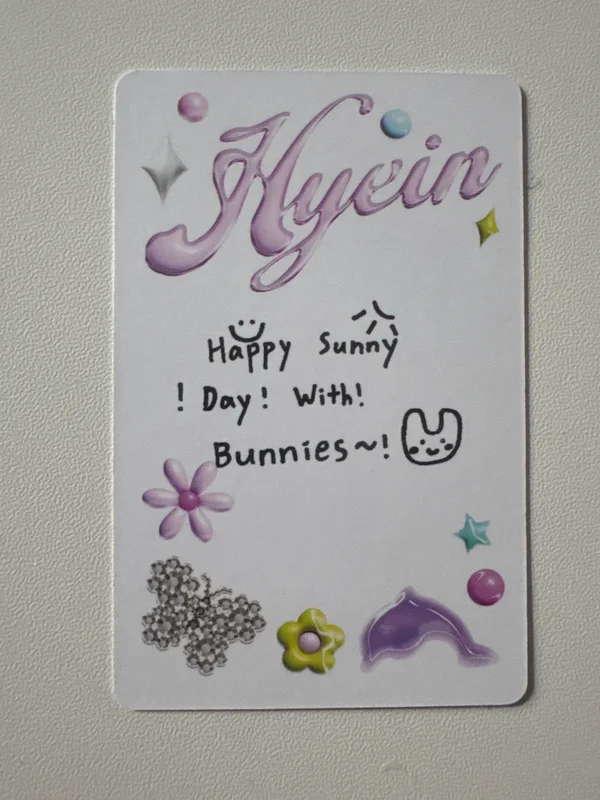 Hyein
Happy Sunny
! Day! With!
Bunnies~!